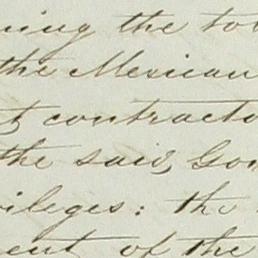 ning the to
the Mexican
t contracto
the said, Gov
ileges: the
ent of the